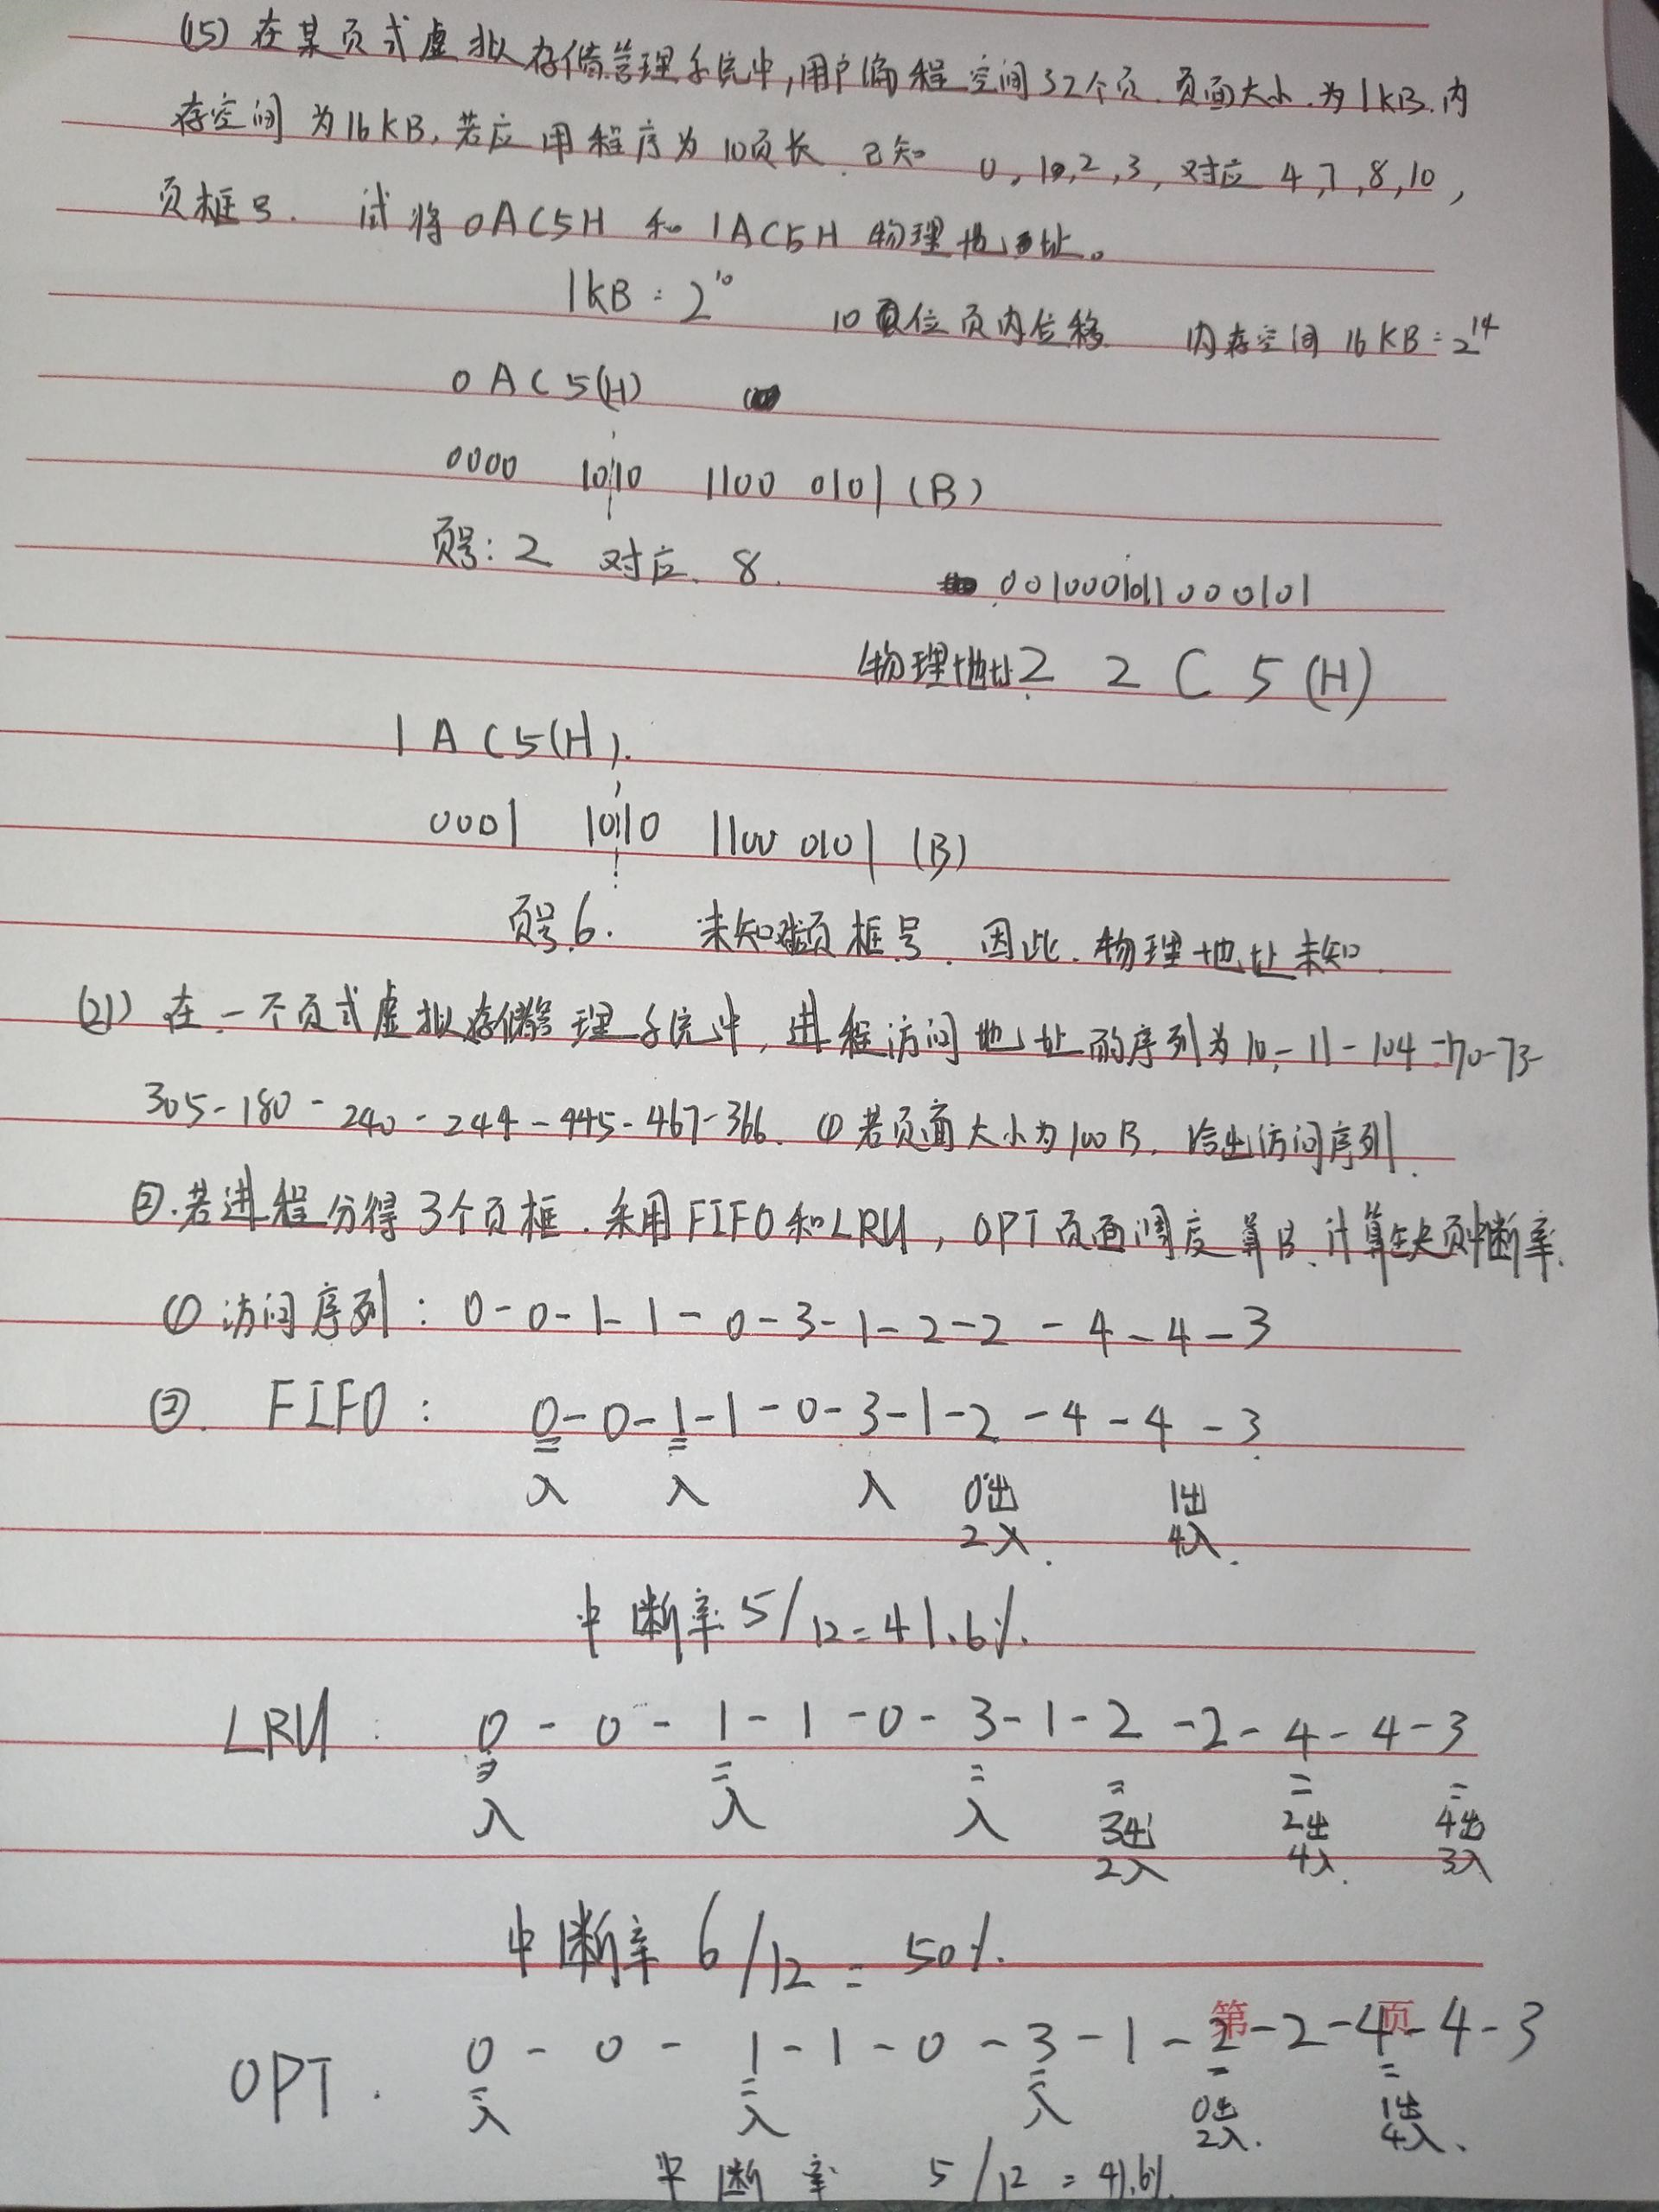 (15) 在某页式虚拟存储管理系统中,用户编程空间32个页.页面大小.为1KB.内
存空间为16KB,若应用程序为10页长.已知 0,1,2,3,对应 4,7,8,10,
页框号. 试将0AC5H 和 1AC5H 物理地址。
1KB=2^10 10位页内位移 内存空间16KB=2^14
0AC5(H)
0000 1010 1100 0101(B)
页号:2 对应.8. 0010001011000101
物理地址22C5(H)
1AC5(H).
0001 1010 1100 0101(B)
页号6. 未知页框号.因此.物理地址未知.
(21) 在一个页式虚拟存储管理系统中,进程访问地址的序列为10-11-104-170-73-
305-180-240-244-445-467-366. ①若页面大小为100B.给出访问序列.
②.若进程分得3个页框.采用FIFO和LRU,OPT页面调度算法.计算缺页中断率.
①访问序列:0-0-1-1-0-3-1-2-2-4-4-3
②. FIFO: 0-0-1-1-0-3-1-2-4-4-3.
入 入 入 0出 1出
2入. 4入.
中断率5/12=41.6%.
LRU: 0-0-1-1-0-3-1-2-2-4-4-3
入 入 入 3出 2出 4出
2入 4入. 3入
中断率 6/12=50%.
第 页
OPT. 0-0-1-1-0-3-1-2-2-4-4-3
入 入 入 0出 1出
2入. 4入.
中断率 5/12=41.6%.